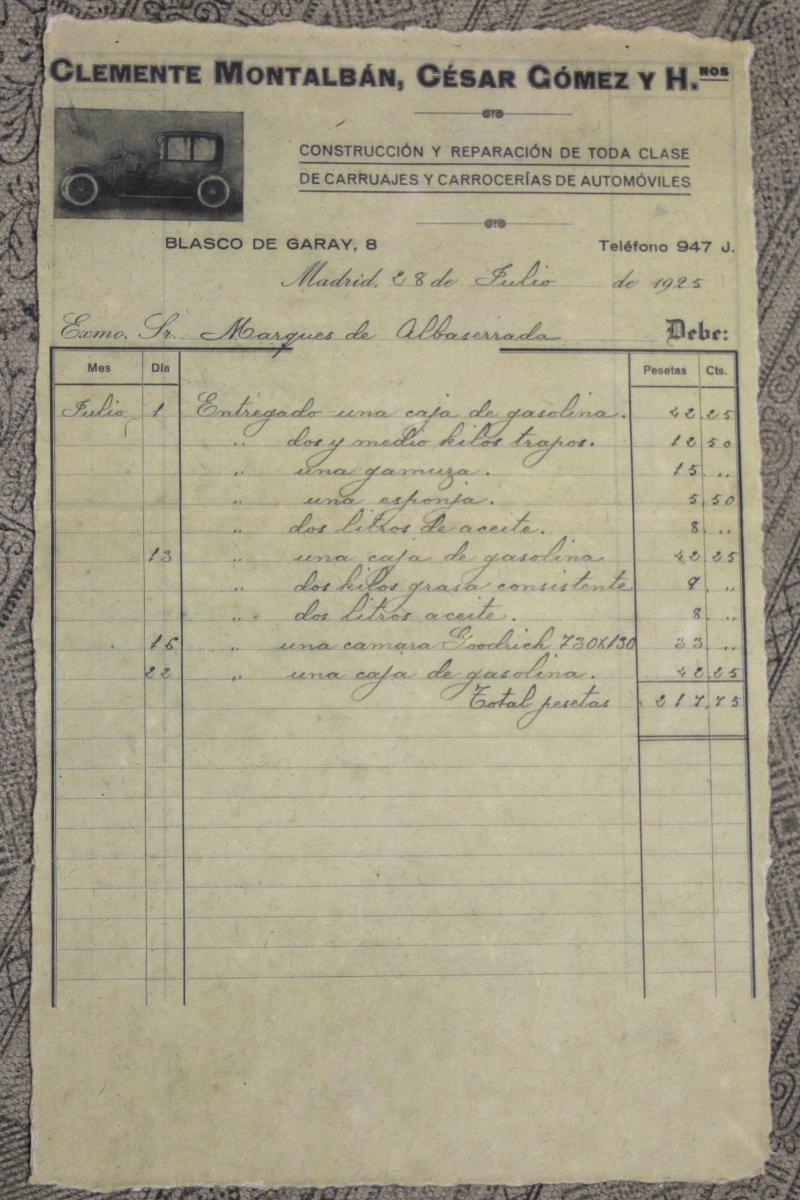 CLEMENTE MONTALBÁN, CÉSAR GÓMEZ Y H.NOS
CONSTRUCCIÓN Y REPARACIÓN DE TODA CLASE
DE CARRUAJES Y CARROCERÍAS DE AUTOMÓVILES
BLASCO DE GARAY, 8 Teléfono 947 J.
Madrid, 28 de Julio de 1925
Exmo. Sr. Marques de Albaserrada Debe:
Mes Día Pesetas Cts.
Julio 1 Entregado una caja de gasolina. 42,25
„ dos y medio kilos trapos. 12 50
„ una gamuza. 15 „
„ una esponja. 5,50
„ dos litros de aceite. 8 „
13 „ una caja de gasolina 42,25
„ dos kilos grasa consistente 9 „
„ dos litros aceite. 8 „
16 „ una camara Goodrich 730X130 33 „
22 „ una caja de gasolina. 42,25
Total pesetas 217,75